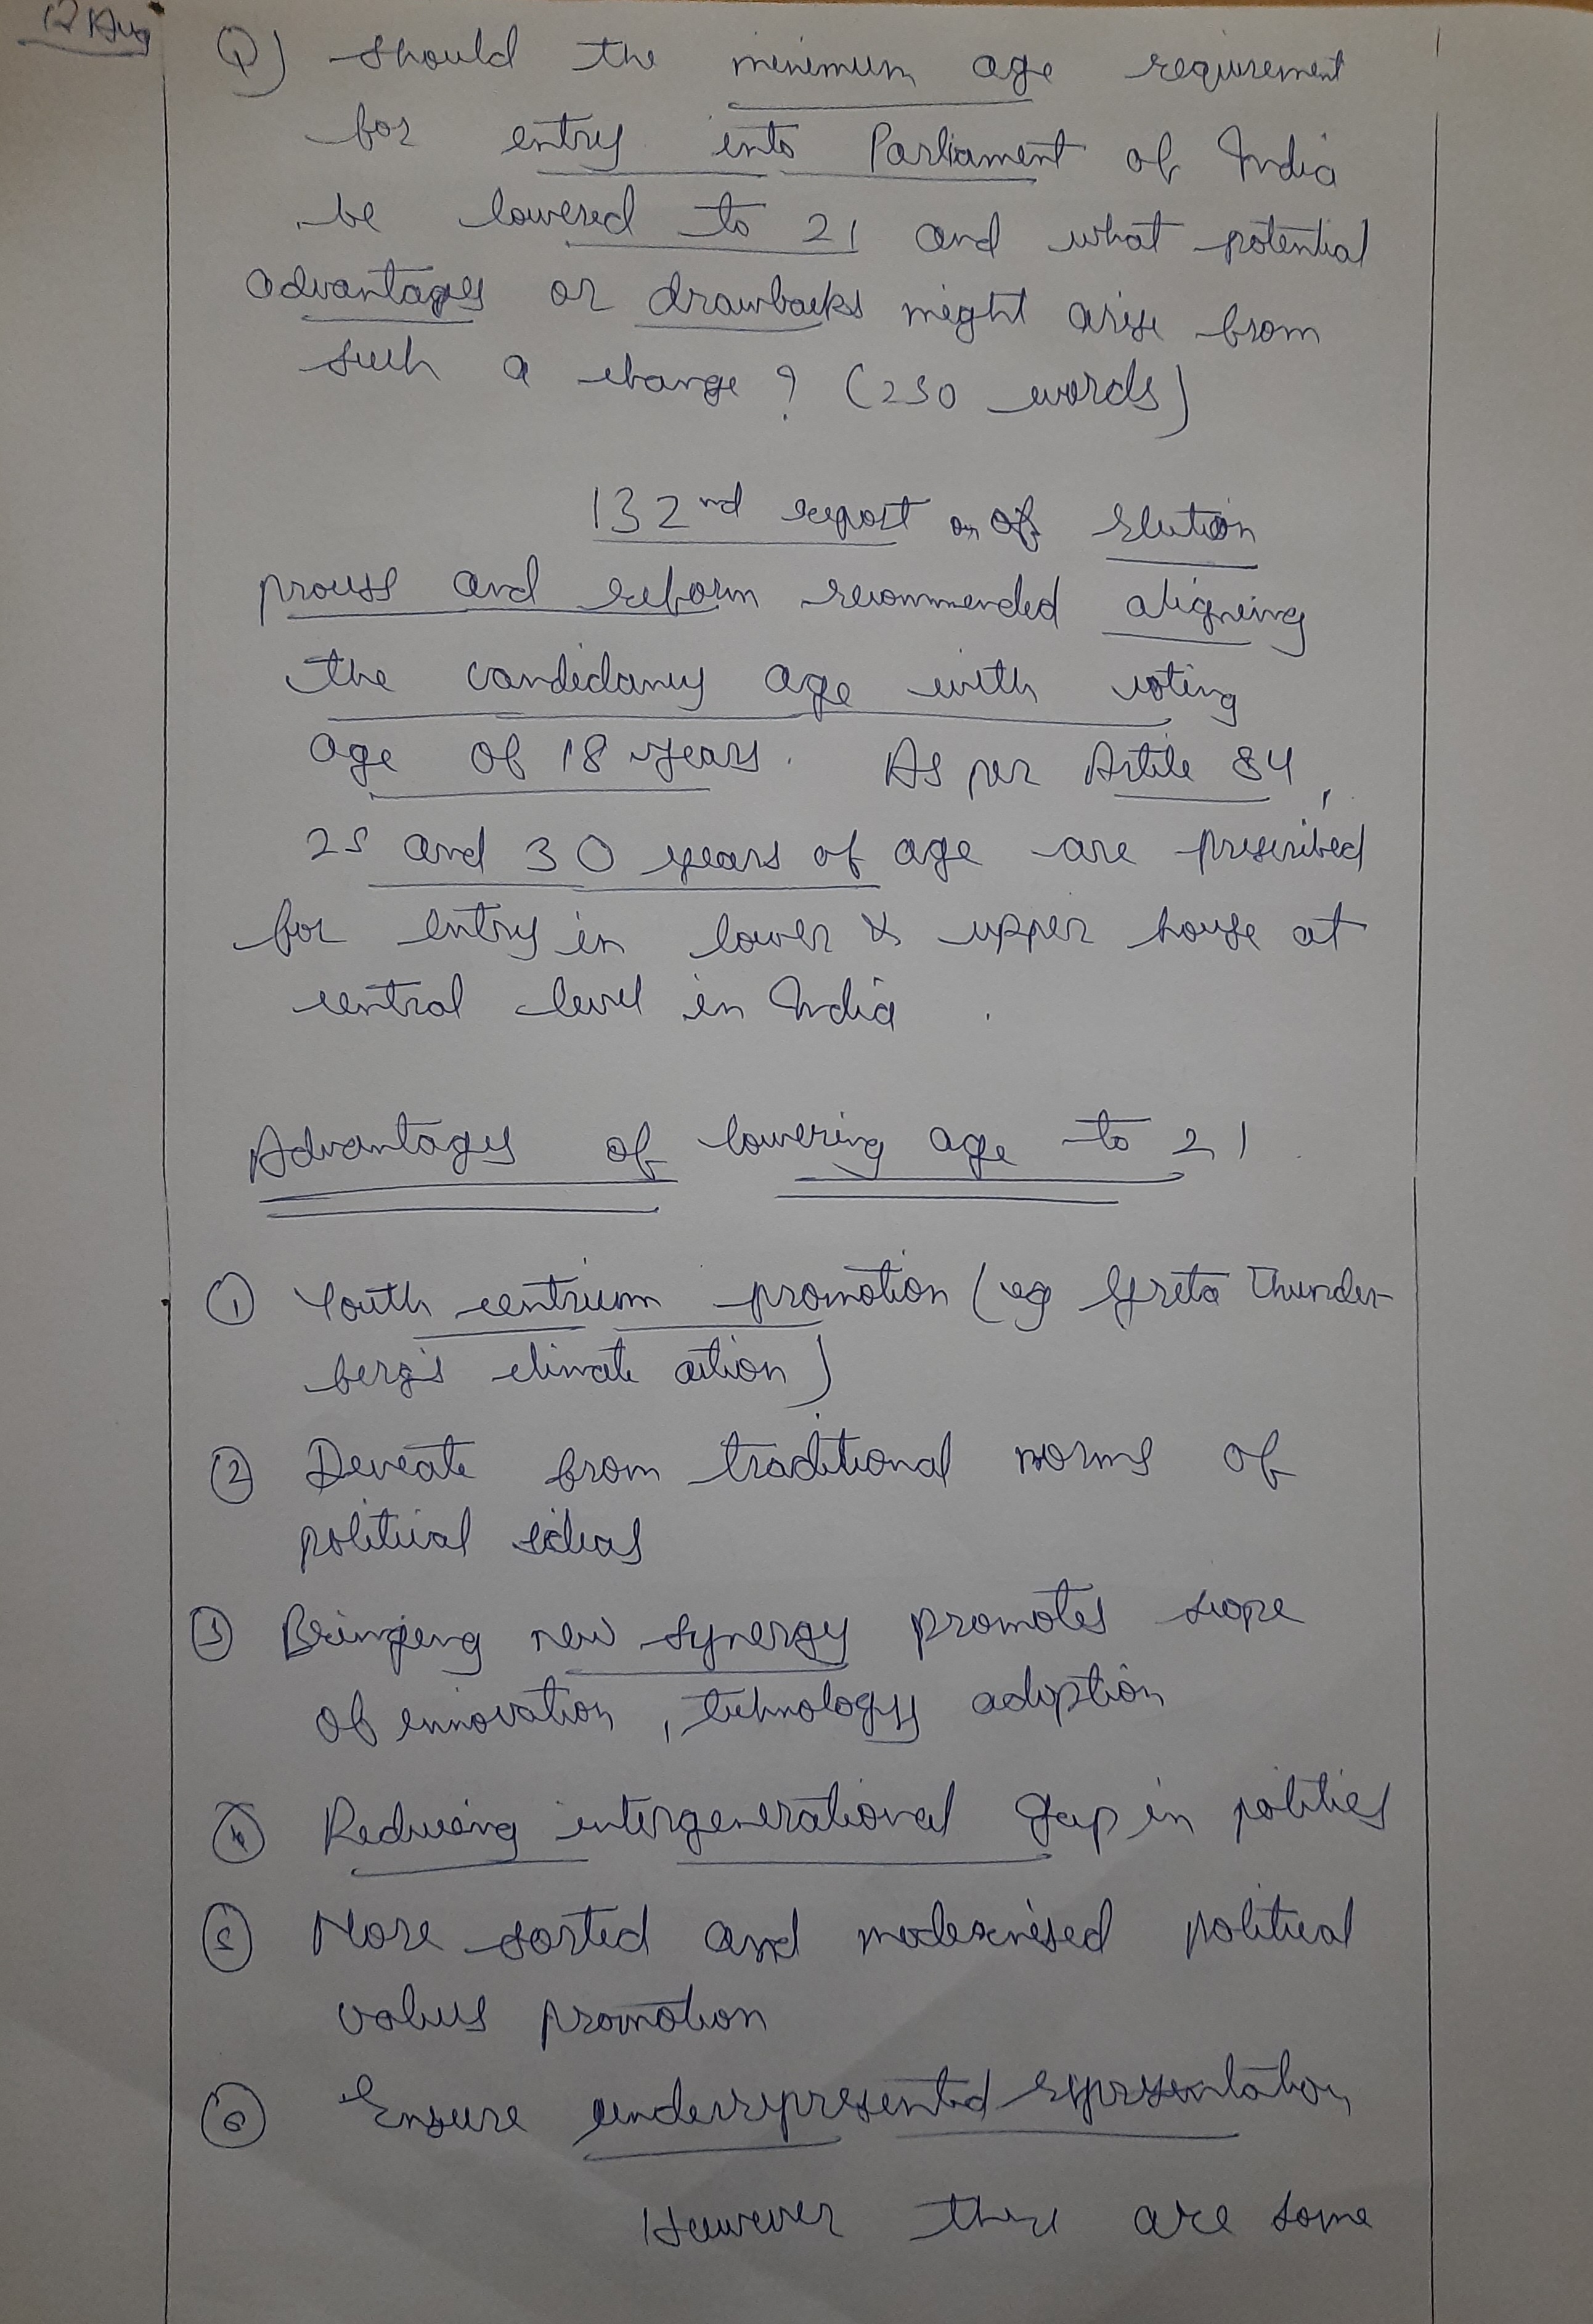 12 Aug
Q) Should the minimum age requirement
for entry into Parliament of India
be lowered to 21 and what potential
advantages or drawbacks might arise from
such a change ? (250 words)
132nd report on of Election
process and reform recommended aligning
the candidancy age with voting
age of 18 years. As per Article 84,
25 and 30 years of age are prescribed
for entry in lower & upper house at
central level in India.
Advantages of lowering age to 21
① Youth centrism promotion (eg Greta Thunder-
berg's climate action)
② Deveate from traditional norms of
political ideas
③ Bringing new synergy promotes scope
of innovation, technology adoption
④ Reducing intergenerational gap in politics
⑤ More sorted and modernised political
values promotion
⑥ Ensure underrepresented representation
However there are some